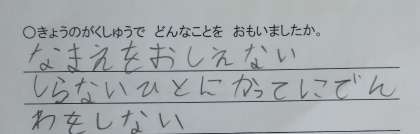 ○きょうのがくしゅうで どんなことを おもいましたか。
なまえをおしえない
しらないひとにかってにでん
わをしない